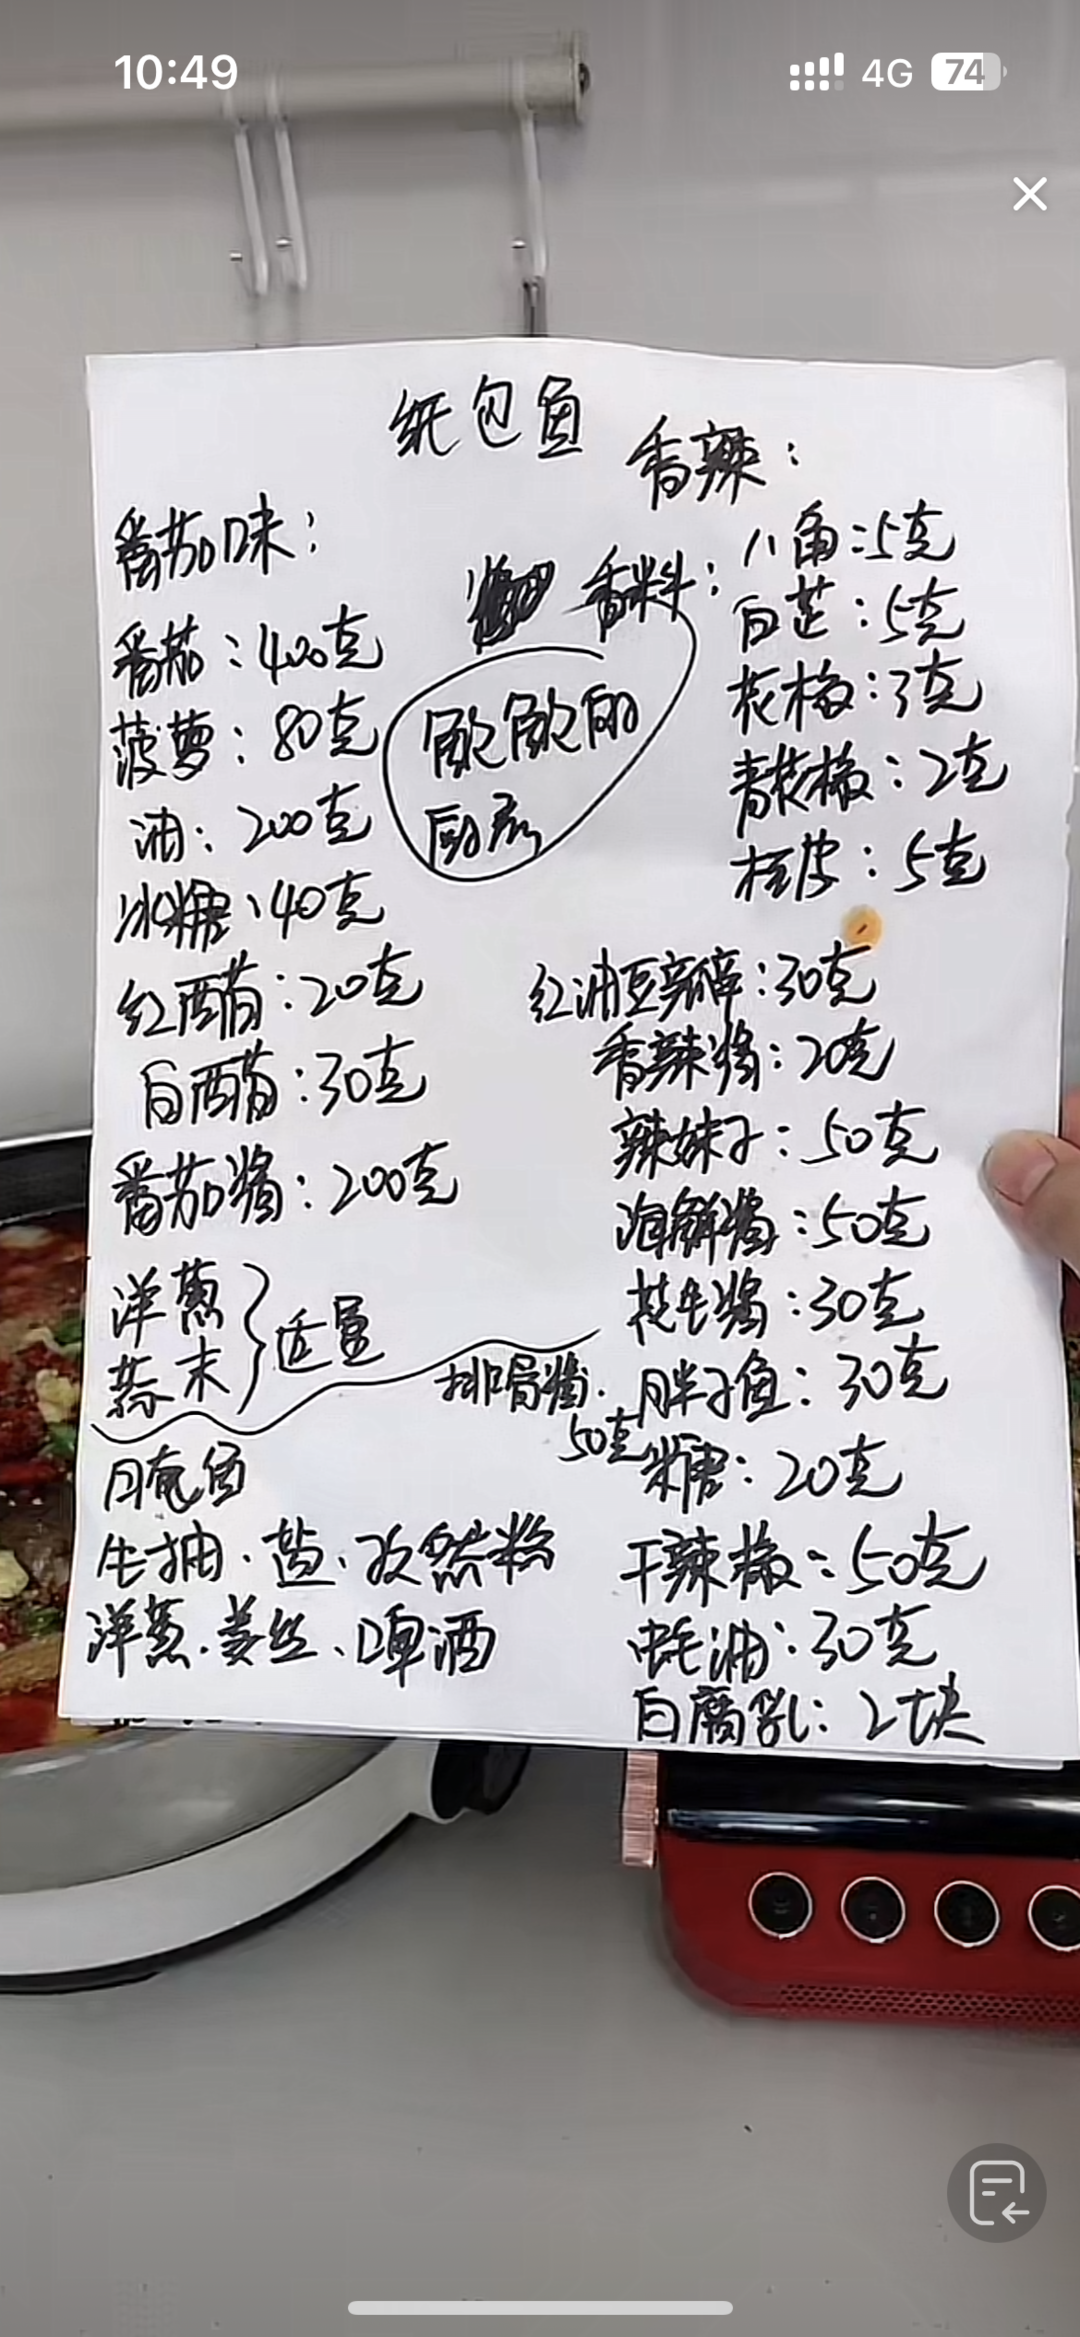 10:49
4G 74
纸包鱼
番茄味:
番茄:400克
菠萝:80克
油:200克
冰糖:40克
红醋:20克
白醋:30克
番茄酱:200克
洋葱
蒜末
适量
腌鱼
生抽.盐、孜然粉
洋葱.姜丝、啤酒
香辣:
香料:
八角:5克
白芷:5克
花椒:3克
青花椒:2克
桂皮:5克
厨房
红油豆瓣:30克
香辣酱:20克
辣妹子:50克
海鲜酱:50克
花生酱:30克
排骨酱.
50克
胖子鱼:30克
糖:20克
干辣椒:50克
蚝油:30克
白腐乳:2块